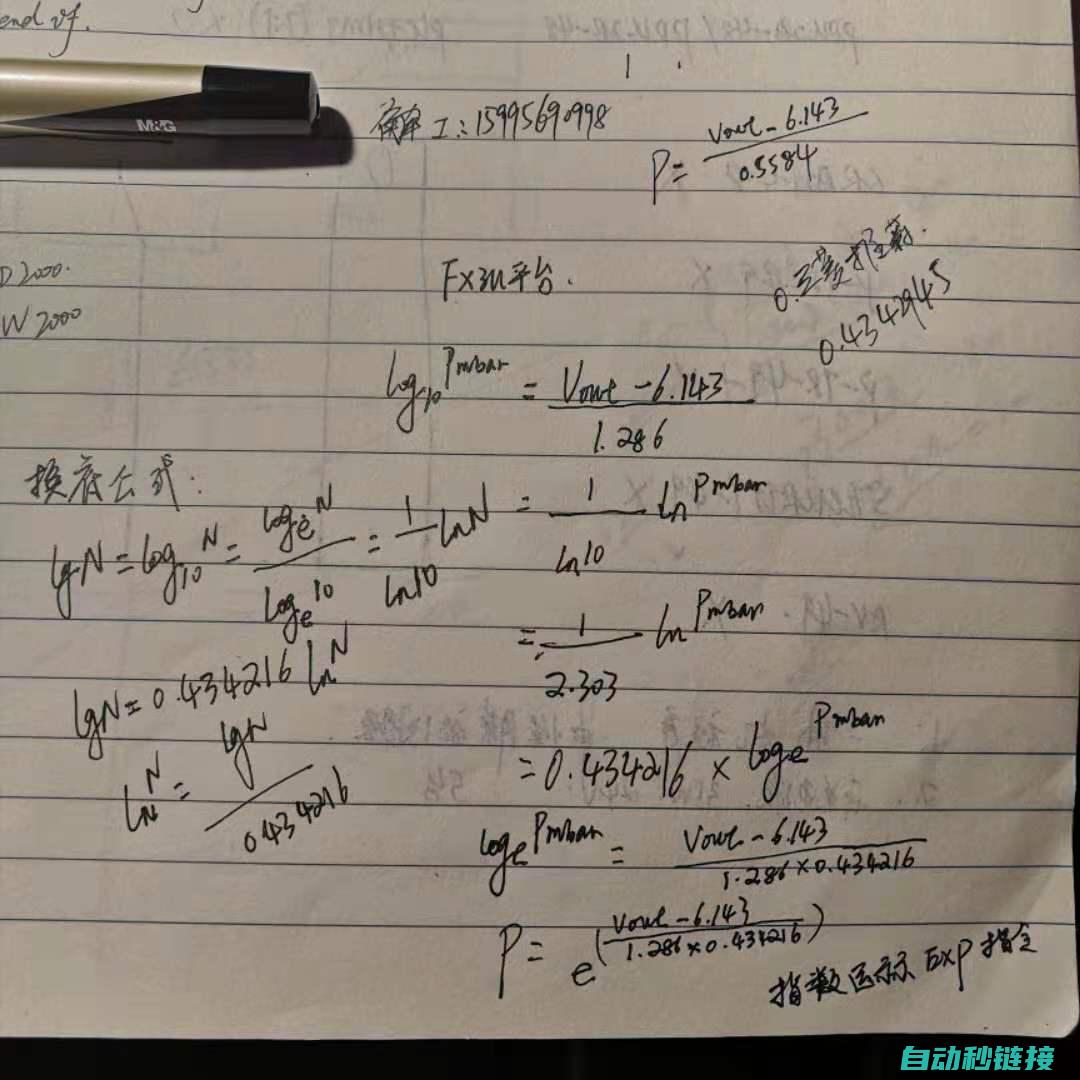 end of.
M&G
工:15995690998
P = (Vout - 6.143) / 0.5584
D 2000.
W 2000
FX3U平台.
0.4342945
log₁₀^Pmbar = (Vout - 6.143) / 1.286
换底公式:
lgN = log₁₀^N = logₑ^N / logₑ^10 = 1/ln10 lnN = 1/ln10 ln^Pmbar
= 1/2.303 ln^Pmbar
lgN = 0.434216 ln^N
= 0.434216 × logₑ^Pmbar
ln^N = lgN / 0.434216
logₑ^Pmbar = (Vout - 6.143) / (1.286×0.434216)
P = e^((Vout - 6.143) / (1.286×0.434216))
指数运算 EXP 指令
自动秒链接